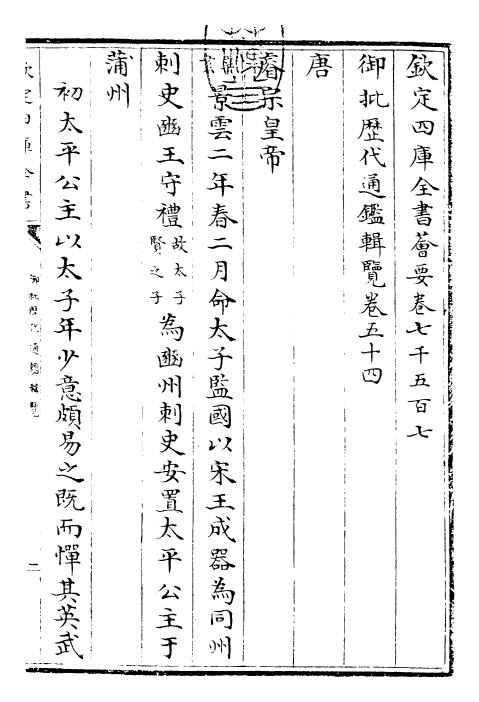 欽定四庫全書薈要卷七千五百七
御批歴代通鑑輯覽卷五十四
唐
睿宗皇帝
景雲二年春二月命太子監國以宋王成器為同州
刺史豳王守禮故太子賢之子為豳州刺史安置太平公主于
蒲州
初太平公主以太子年少意頗易之既而憚其英武
欽定四庫全書
御批歴代通鑑輯覽